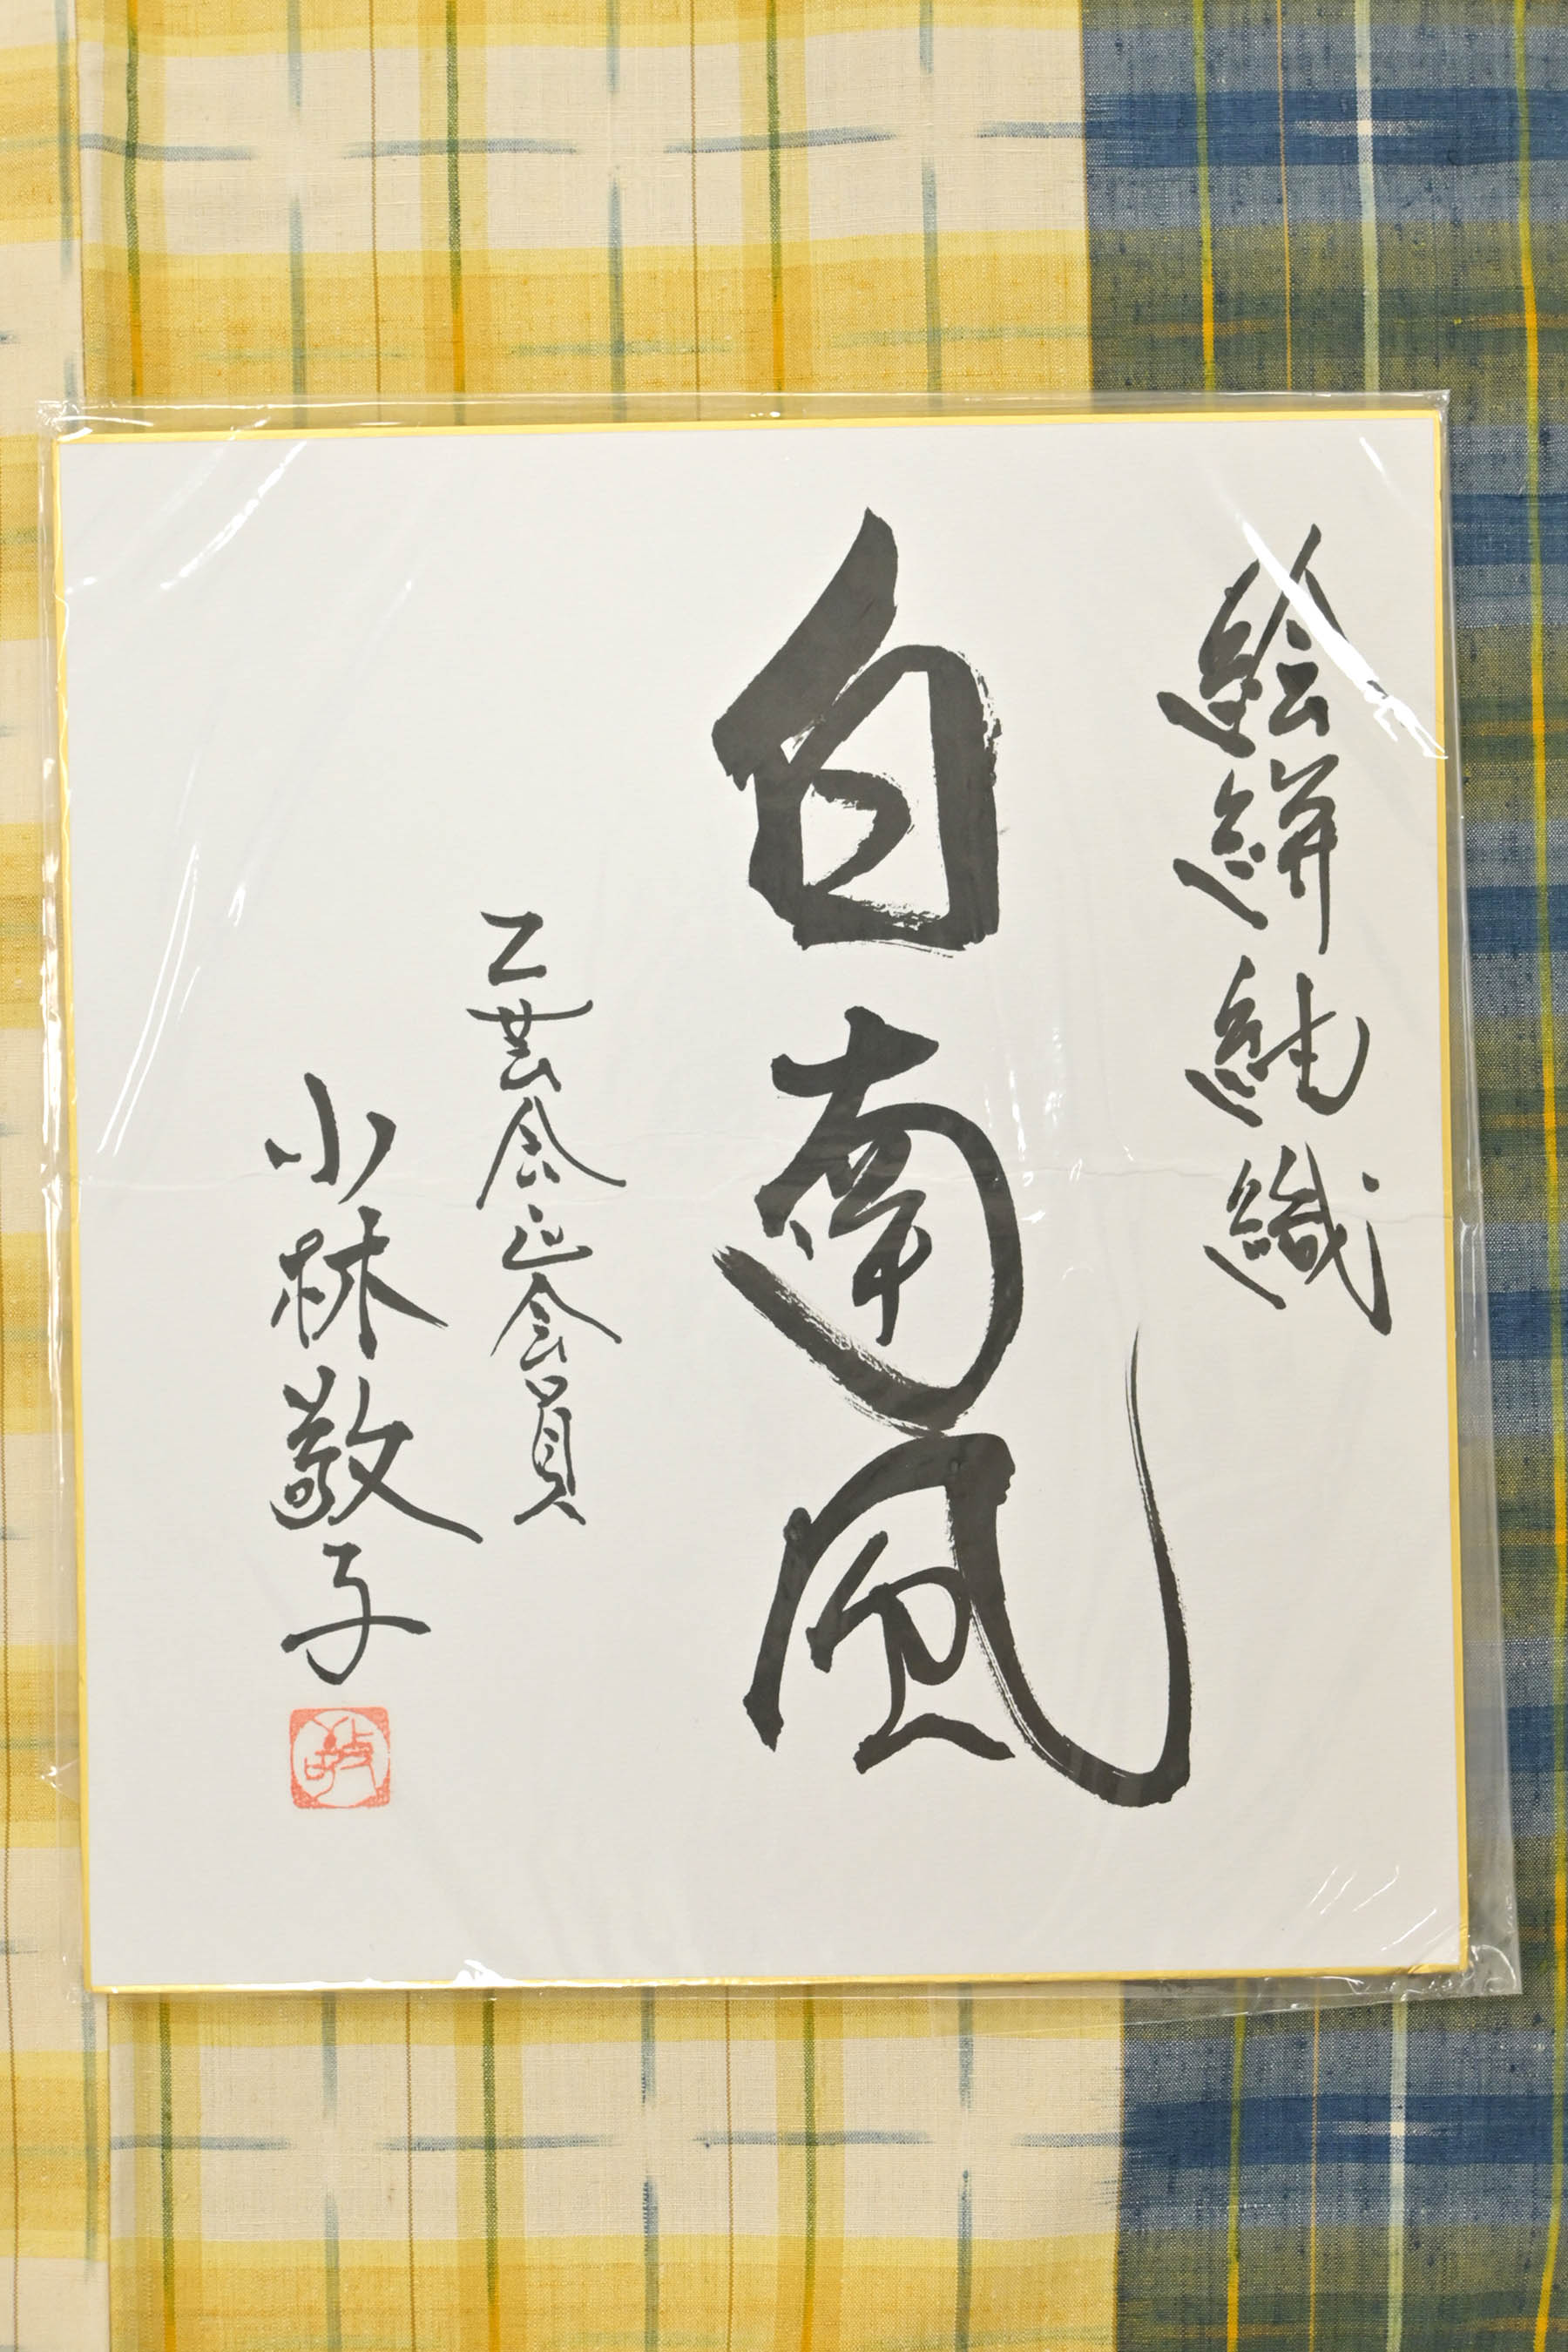 絵絣紬織
白南風
工芸会正会員
小林敬子
敬